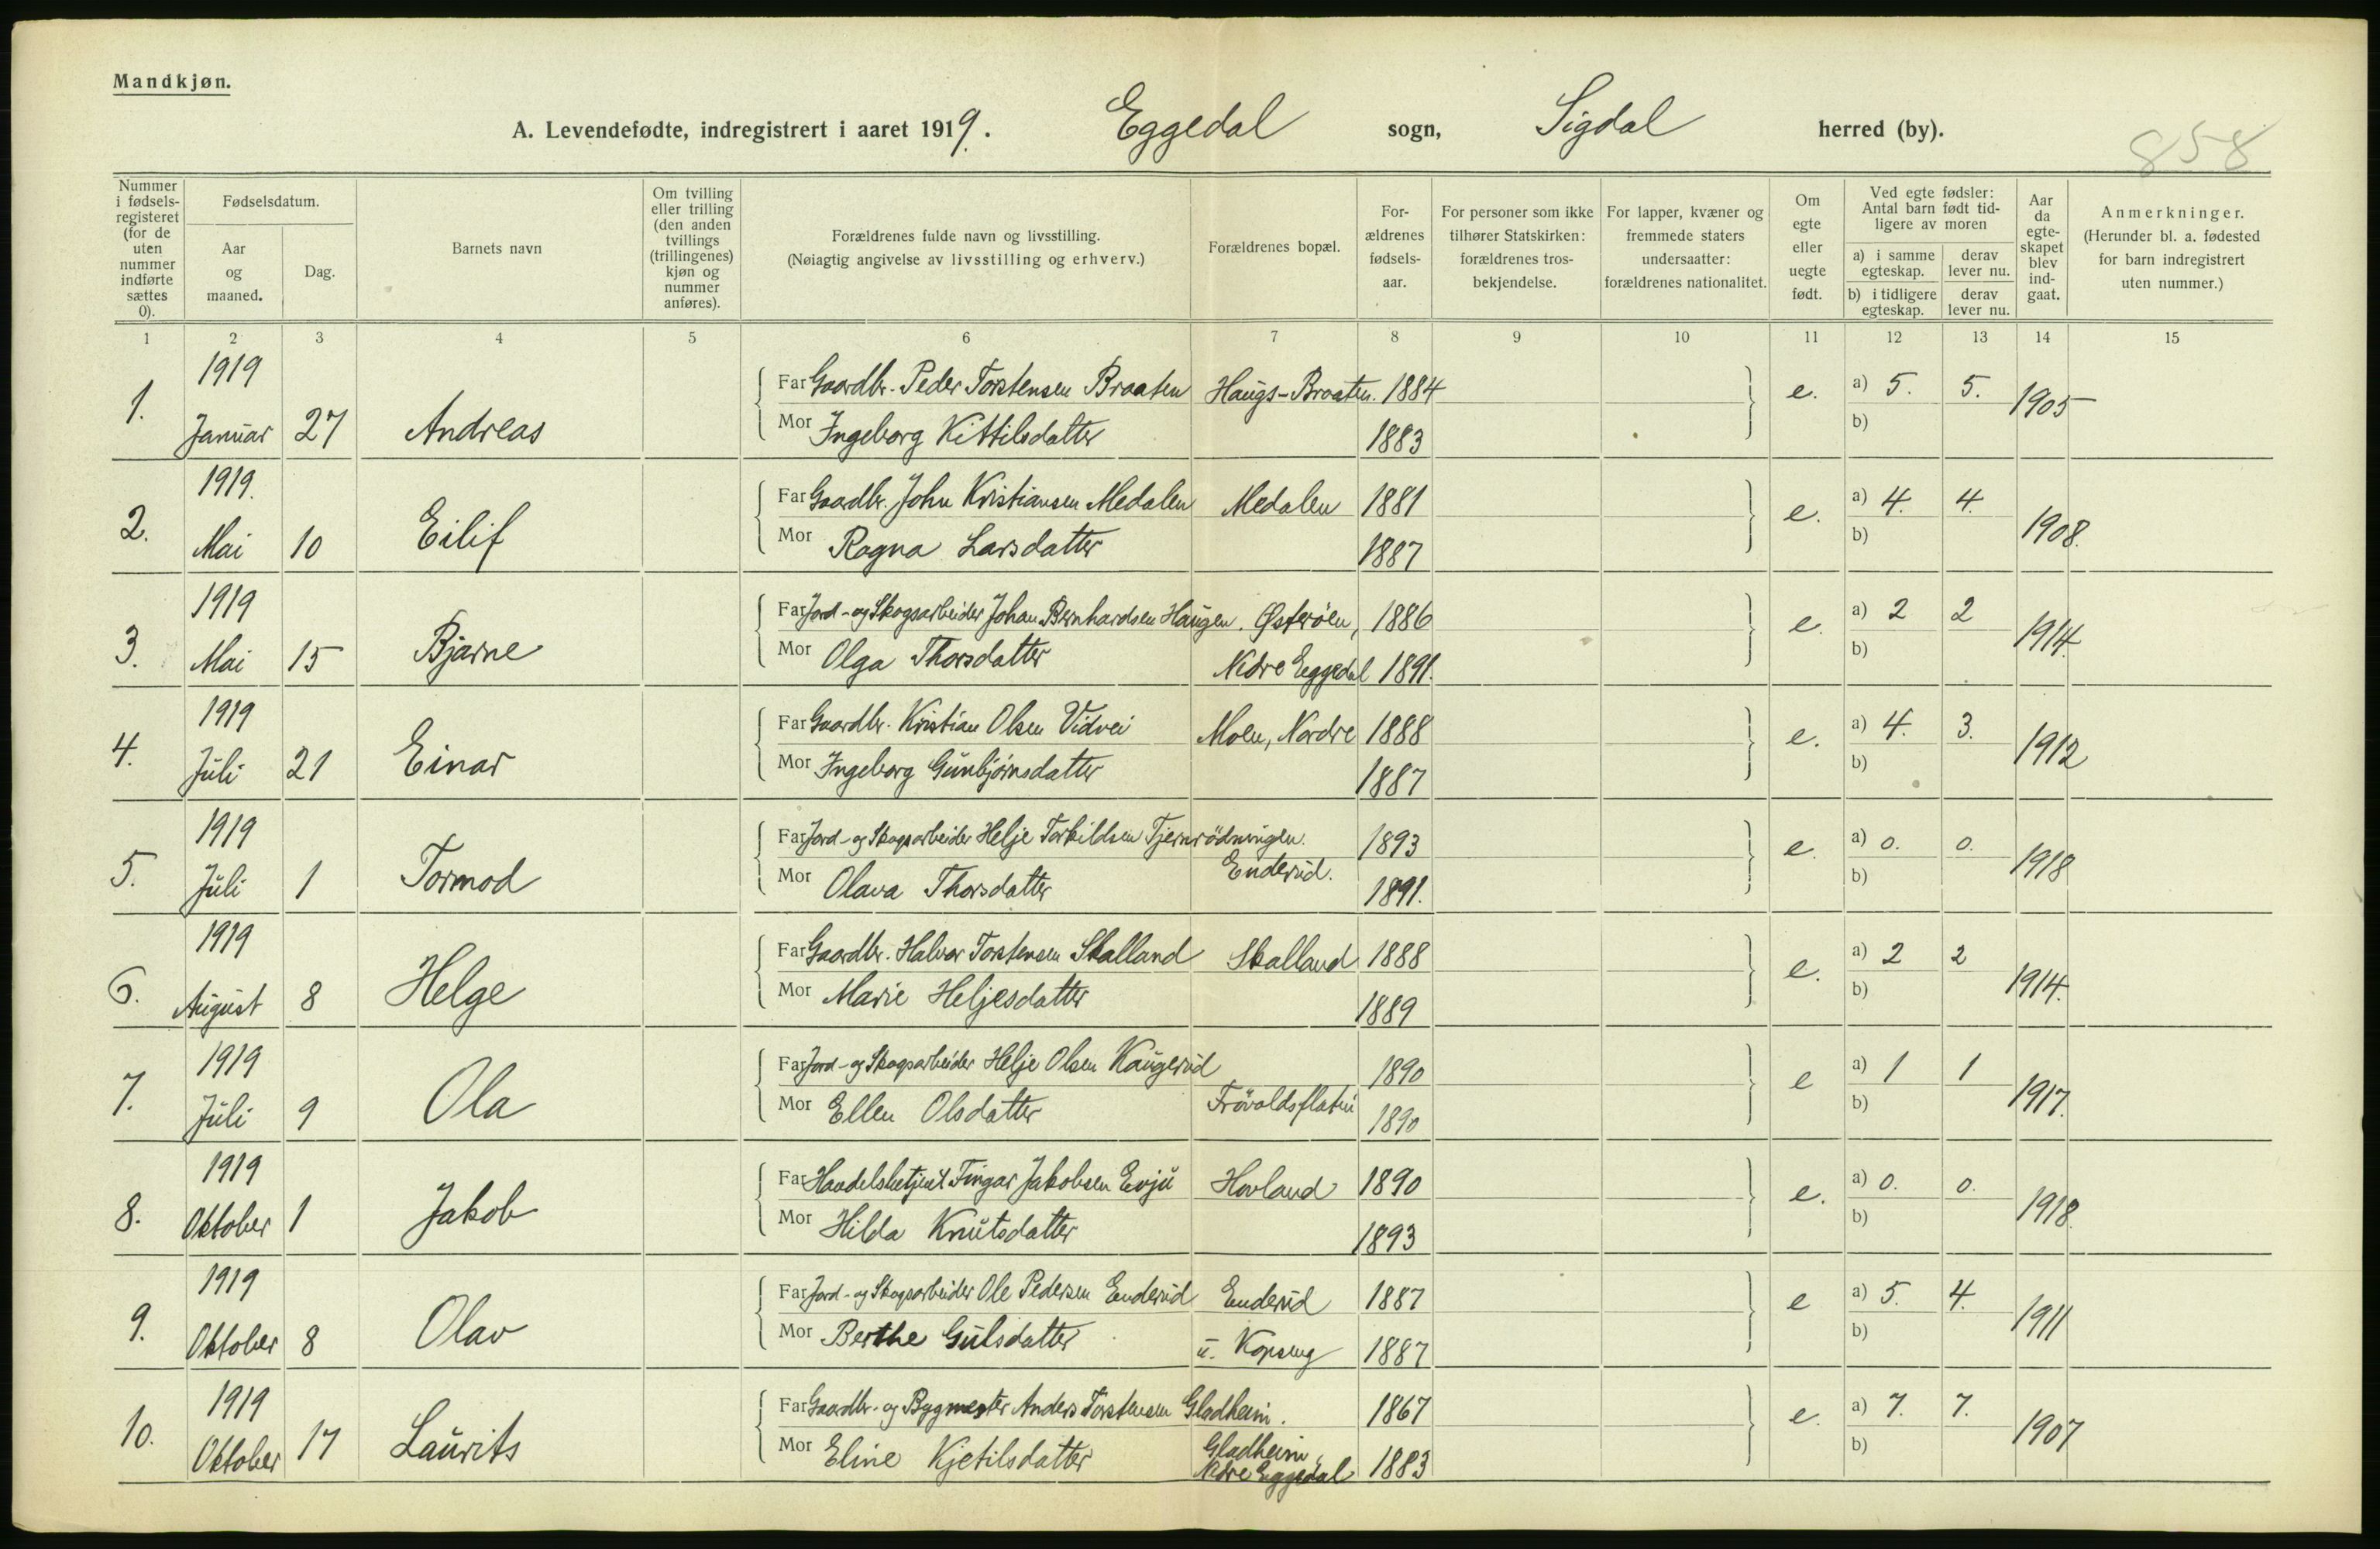 Mandkjøn.
A. Levendefødte, indregistrert i aaret 1919. Eggedal sogn, Sigdal herred (by).
858
Nummer i fødselsregisteret (for de uten nummer indførte sættes 0).
Fødselsdatum.
Aar og maaned.
Dag.
Barnets navn
Om tvilling eller trilling (den anden tvillings (trillingenes) kjøn og nummer anføres).
Forældrenes fulde navn og livsstilling.
(Nøiagtig angivelse av livsstilling og erhverv.)
Forældrenes bopæl.
Forældrenes fødselsaar.
For personer som ikke tilhører Statskirken: forældrenes trosbekjendelse.
For lapper, kvæner og fremmede staters undersaatter: forældrenes nationalitet.
Om egte eller uegte født.
Ved egte fødsler: Antal barn født tidligere av moren
a) i samme egteskap.
derav lever nu.
b) i tidligere egteskap.
derav lever nu.
Aar da egteskapet blev indgaat.
Anmerkninger.
(Herunder bl. a. fødested for barn indregistrert uten nummer.)
1 2 3 4 5 6 7 8 9 10 11 12 13 14 15
1. 1919 Januar 27 Andreas
Far Gaardbr. Peder Torstensen Braaten Haugs-Braaten. 1884 e. a) 5. 5. 1905
Mor Ingeborg Kittilsdatter 1883 b)
2. 1919. Mai 10 Eilif
Far Gaardbr. John Kristiansen Medalen Medalen 1881 e. a) 4. 4. 1908.
Mor Ragna Larsdatter 1887 b)
3. 1919 Mai 15 Bjarne
Far Jord- og Skogsarbeider Johan Bernhardsen Haugen. Østerøen, 1886 e. a) 2 2 1914.
Mor Olga Thorsdatter Nedre Eggedal 1891. b)
4. 1919 Juli 21 Einar
Far Gaardbr. Kristian Olsen Vidvei Moen, Nordre 1888 e. a) 4. 3. 1912
Mor Ingeborg Gunbjørnsdatter 1887 b)
5. 1919 Juli 1 Tormod
Far Jord- og Skogsarbeider Helje Torkildsen Tjernrödningen. 1893 e. a) 0. 0. 1918
Mor Olava Thorsdatter Enderud. 1891. b)
6. 1919 August 8 Helge
Far Gaardbr. Halvor Torstensen Skalland Skalland 1888 e. a) 2 2 1914.
Mor Marie Heljesdatter 1889 b)
7. 1919 Juli 9 Ola
Far Jord- og Skogsarbeider Helje Olsen Kaugerud 1890 e a) 1 1 1917.
Mor Ellen Olsdatter Frövoldsflaten 1890 b)
8. 1919 Oktober 1 Jakob
Far Handelsbetjent Fingar Jakobsen Evju Hovland 1890 e. a) 0. 0. 1918.
Mor Hilda Knutsdatter 1893 b)
9. 1919 Oktober 8 Olav
Far Jord- og Skogsarbeider Ole Pedersen Enderud Enderud 1887 e a) 5. 4. 1911
Mor Berthe Gulsdatter u. Kopseng 1887 b)
10. 1919 Oktober 17 Laurits
Far Gaardbr. og Bygmester Anders Torstensen Gladheim. 1867 e. a) 7. 7. 1907
Mor Eline Kjetilsdatter Gladheim, Nedre Eggedal 1883 b)